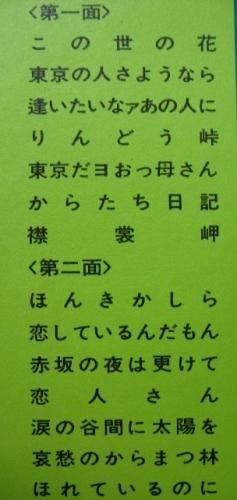 <第一面>
この世の花
東京の人さようなら
逢いたいなァあの人に
りんどう峠
東京だヨおっ母さん
からたち日記
襟裳岬
<第二面>
ほんきかしら
恋しているんだもん
赤坂の夜は更けて
恋人さん
涙の谷間に太陽を
哀愁のからまつ林
ほれているのに